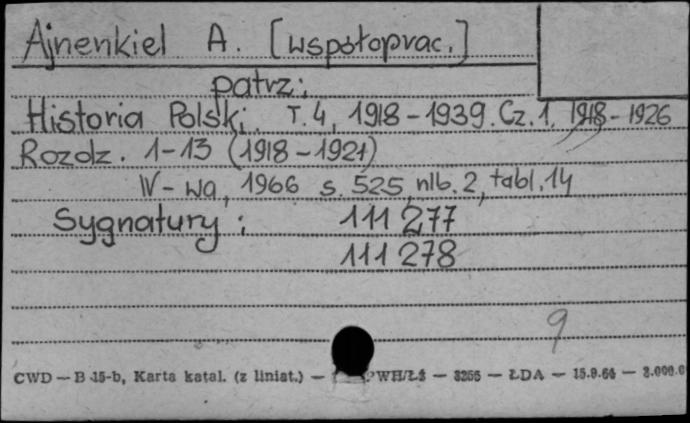 Ajnenkiel A. [współoprac.]
patrz:
Historia Polski. T. 4, 1918-1939. Cz. 1, 1918-1926
Rozdz. 1-13 (1918-1921)
W-wa, 1966 s. 525, nlb. 2, tabl. 14
Sygnatury: 111 277
111 278
9
CWD — B 15-b, Karta katal. (z liniat.) — PWH/Łż — 3266 — ŁDA — 15.9.64 — 2.000.0